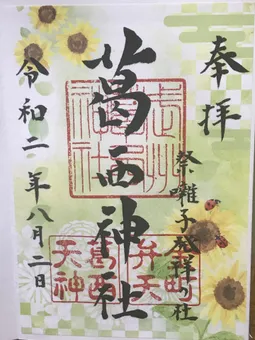 奉拝
祭囃子発祥の社
葛西神社
令和二年八月二日
葛西神社
金町弁天
葛西天神